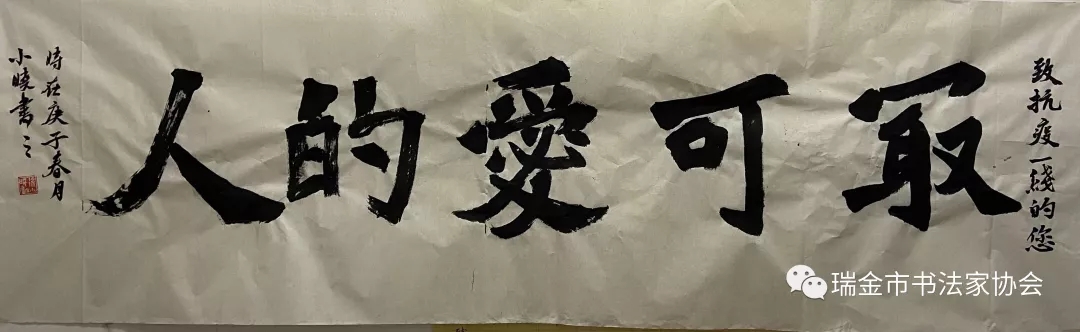 致抗疫一线的您
冣可愛的人
时在庚子春月
小晓书之
瑞金市书法家协会